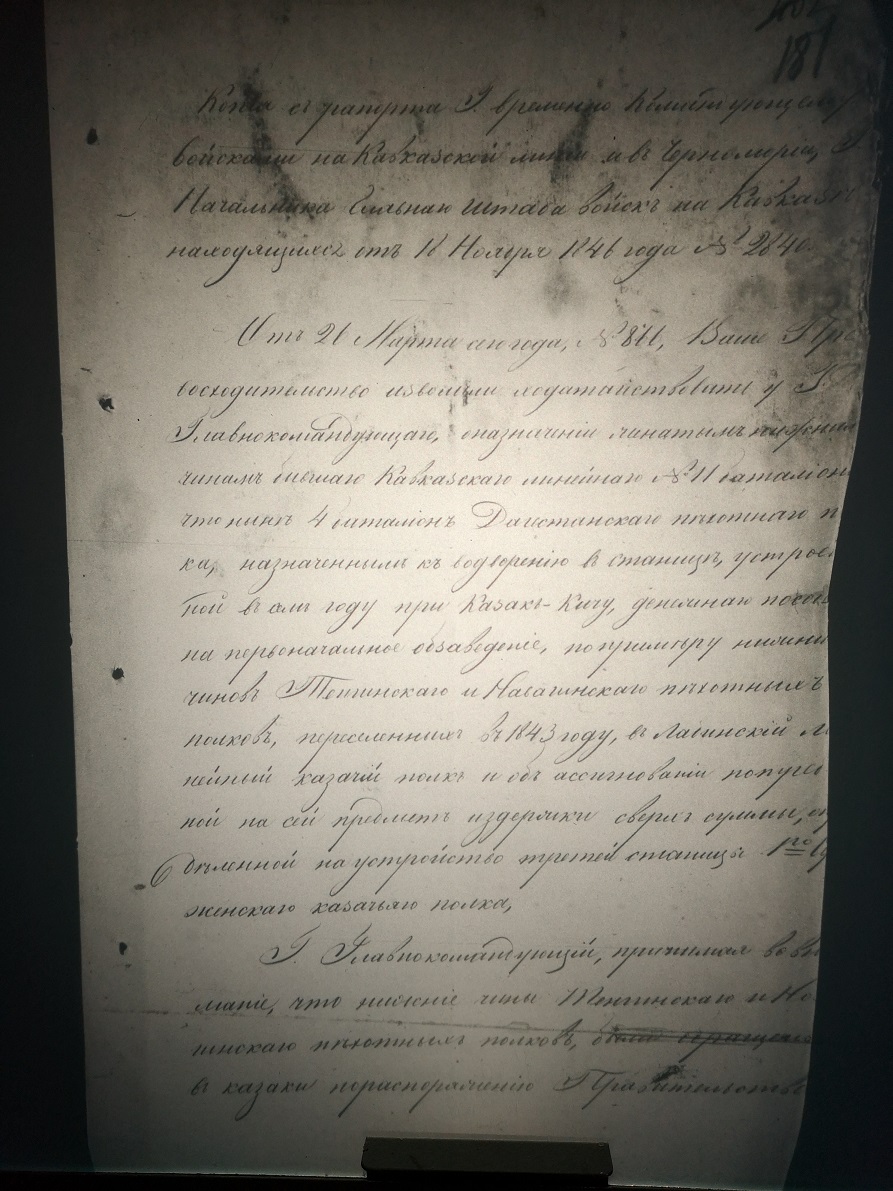 181
Копiя съ рапорта Г. временно Командующему
войсками на Кавказской линiи и въ Черноморiи, Г.
Начальника Главнаго Штаба войскъ на Кавказѣ
находящихся отъ 18 Ноября 1846 года № 2840.
Отъ 26 Марта сего года, № 811, Ваше Пре
восходительство изволили ходатайствовать у Г.
Главнокомандующаго, о назначенiи женатымъ нижним
чинамъ бывшаго Кавказскаго линейнаго № 11 баталiон
что нынѣ 4 баталiонъ Дагестанскаго пѣхотнаго п
ка, назначеннымъ къ водворенiю въ станицѣ, устроен
ной въ семъ году при Казакъ-Кичу, денежнаго пособ
на первоначальное обзаведенiе, по примѣру нижни
чиновъ Тенгинскаго и Навагинскаго пѣхотныхъ
полковъ, переселенныхъ въ 1843 году, въ Лабинскiй ли
нейный казачiй полкъ и объ ассигнованiи потреб
ной на сей предметъ издержки сверхъ суммы, оп
дѣленной на устройство третей станицы 1го Су
женскаго казачьяго полка,
Г. Главнокомандующiй, принимая во вни
манiе, что нижнiе чины Тенгинскаго и На
гинскаго пѣхотныхъ полковъ, были обращены
въ казаки по распоряженiю Правительств